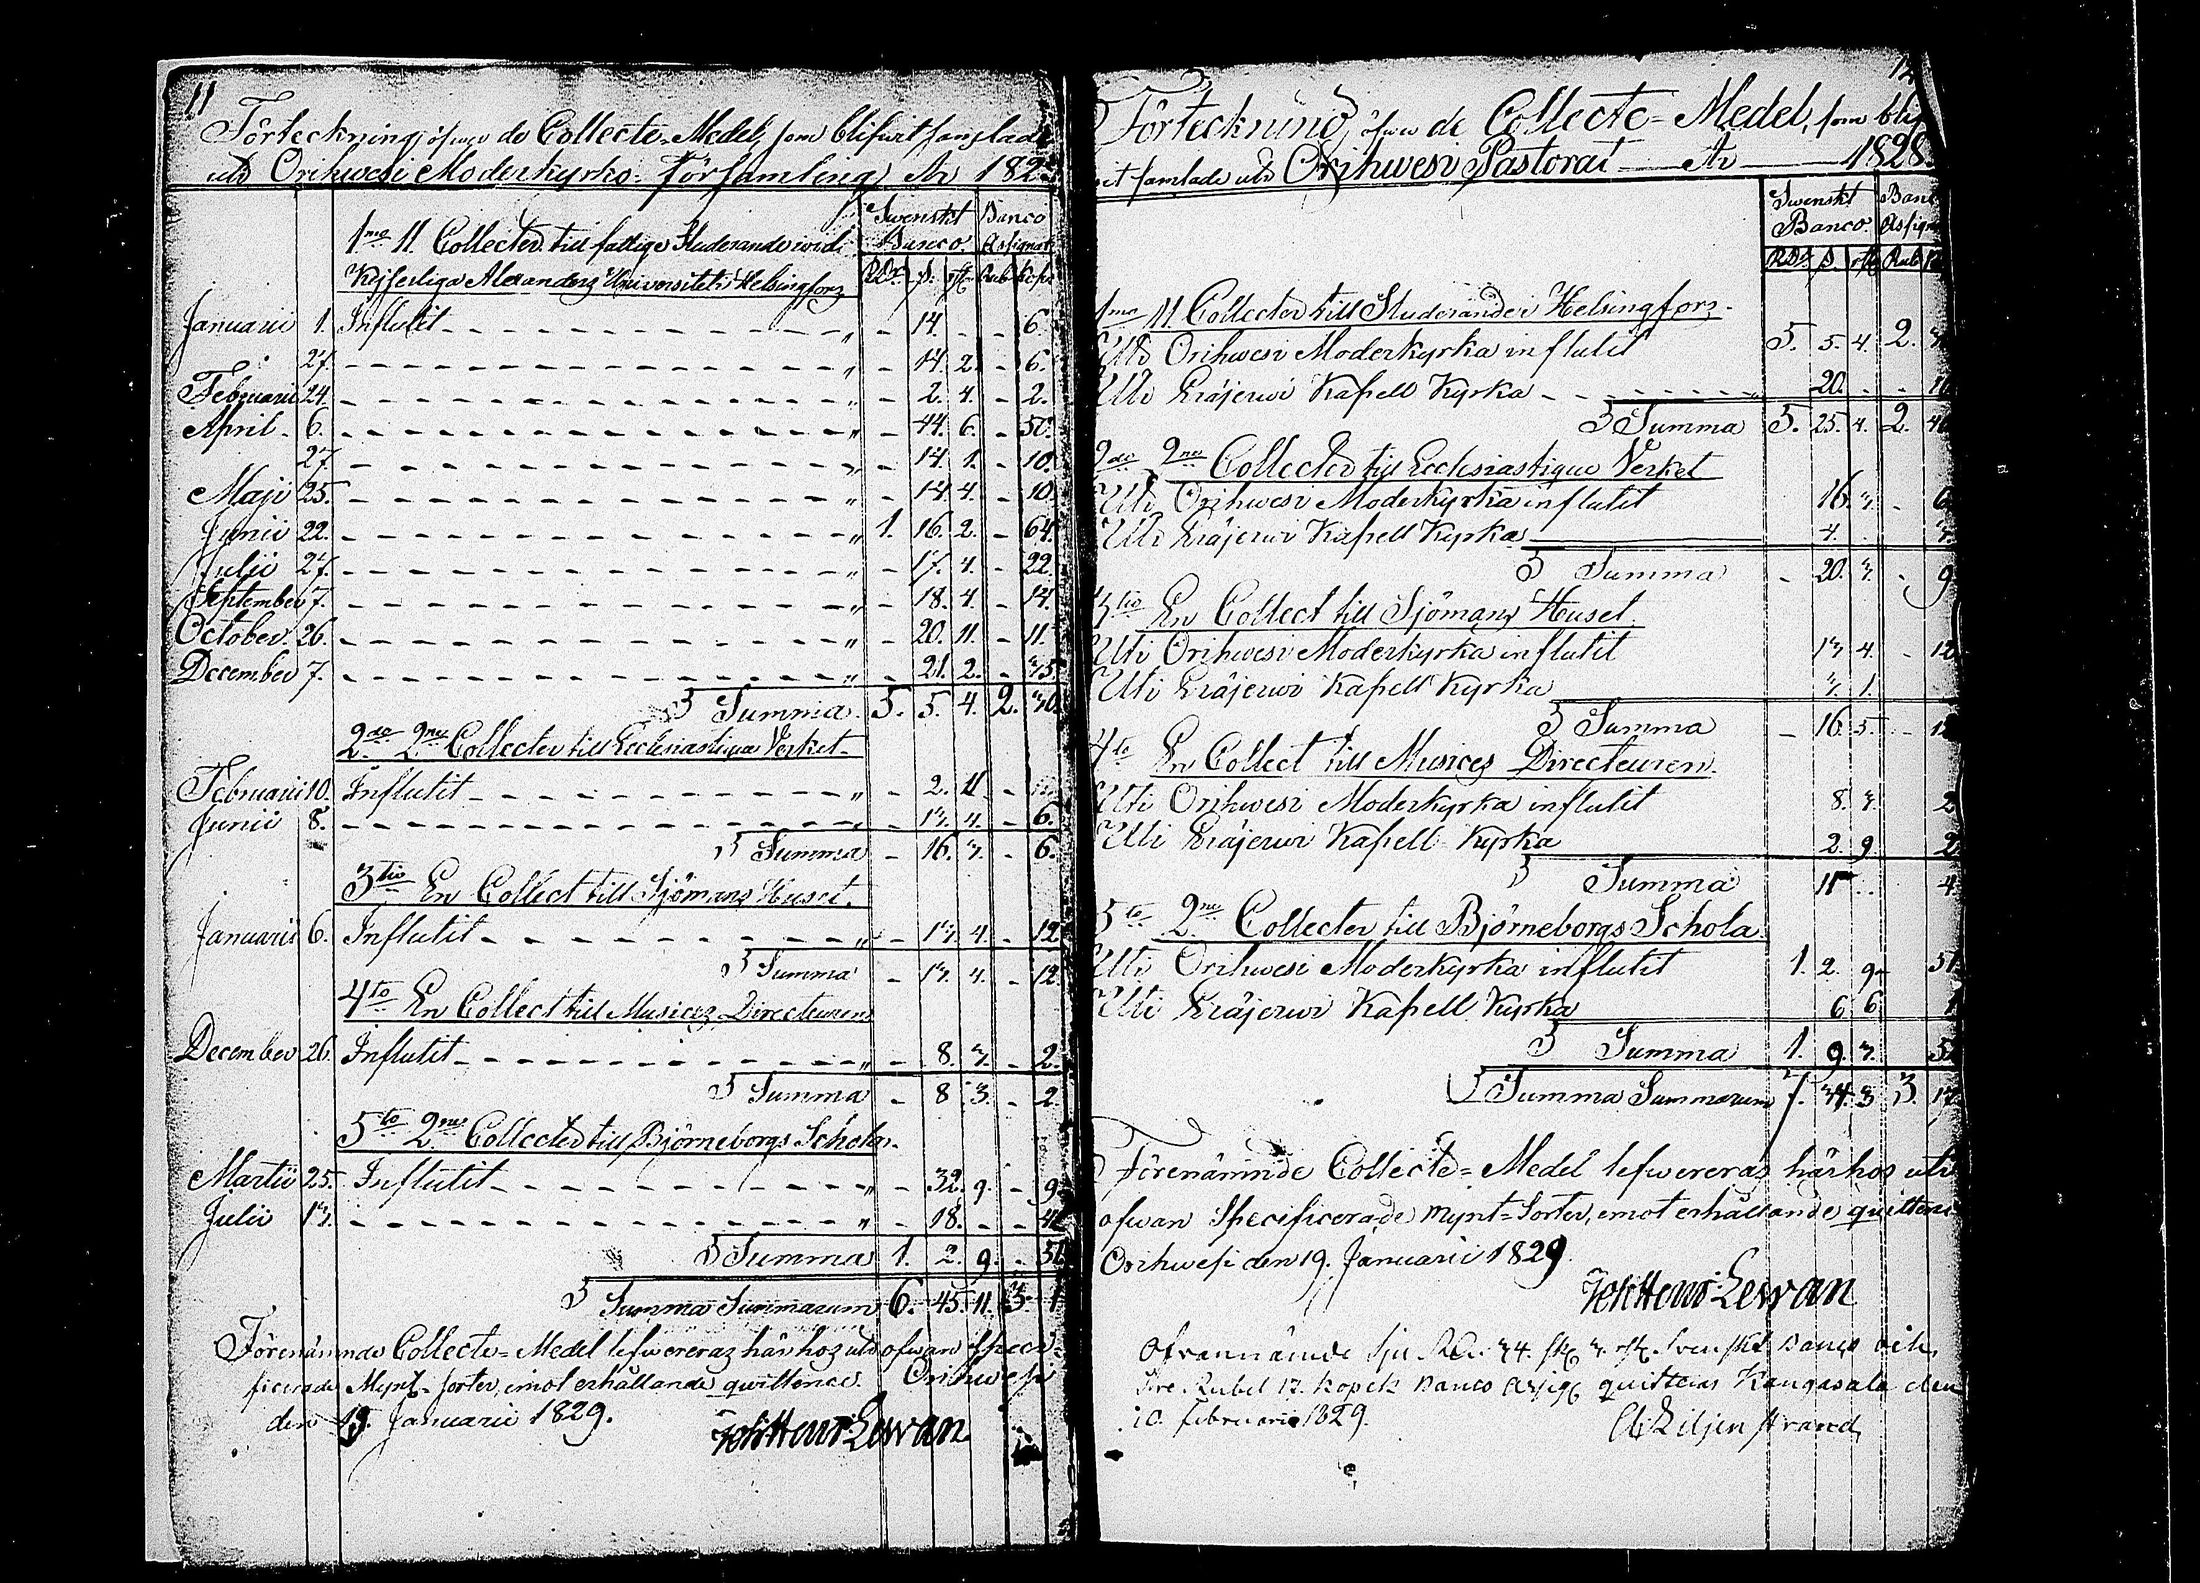 11
Förteckning öfwer de Collecte-Medel, som blifwit samlade
uti Orihwesi Moderkyrko-Församling År 182
Swenskt Banco
Banco Assignat
1mo 11 Collecter till fattige Studerande wid
Kejserliga Alexanders Universitetet i Helsingfors
RDr. ß. rst. Rub. Kop.
Januarii 1. Influtit - 14. - - 6.
27. - 14. 2. - 6.
Februarii 24. - 2. 4. - 2.
April. 6. - 44. 6. - 50.
27. - 14. 1. - 10.
Maji 25. - 14. 4. - 10.
Junii 22. 1. 16. 2. - 64.
Julii 27. - 17. 4. - 22.
September 7. - 18. 4. - 14.
October. 26. - 20. 11. - 11.
December 7. - 21. 2. - 35.
Summa 5. 5. 4. 2. 30.
2do 2ne Collecter till Ecclesiastique Verket
Februarii 10. Influtit - 2. 11. -
Junii 8. - 13. 4. - 6.
Summa - 16. 3. - 6.
3tio En Collect till Sjömans Huset.
Januarii 6. Influtit - 13. 4. - 12.
Summa - 13. 4. - 12.
4to En Collect till Musices Directeuren
December 26. Influtit - 8. 3. - 2.
Summa - 8. 3. - 2.
5to 2ne Collecter till Björneborgs Schola.
Martii 25. Influtit - 32. 9. - 9.
Julii 13. - 18. - - 42
Summa 1. 2. 9. - 51
Summa Summarum 6. 45. 11. 3. 1
Förenämnde Collecte-Medel lefwereras här hos uti ofwan speci-
ficerade Mynt-sorter, emot erhållande qwittence. Orihwesi
den 19. Januarii 1829.
Joh: Henr: Lewan
12
Förteckning öfwer de Collecte-Medel, som blif
wit samlade uti Orihwesi Pastorat År 1828.
Swenskt Banco.
Banc Assign
RDr ß. rst Rub
1mo 11 Collecter till Studerande i Helsingfors.
Uti Orihwesi Moderkyrka influtit 5. 5. 4. 2. 3
Uti Eräjerwi Kapell Kyrka - 20. - - 1
Summa 5. 25. 4. 2. 4
2do 2ne Collecter till Ecclesiastique Verket
Uti Orihwesi Moderkyrka influtit 16. 3. - 6
Uti Eräjerwi Kapell Kyrka 4. 3.
Summa - 20. 3. - 9
3tio En Collect till Sjömans Huset.
Uti Orihwesi Moderkyrka influtit 13 4. - 12
Uti Eräjerwi Kapell Kyrka 3. 1.
Summa - 16. 5. - 12
4to En Collect till Musices Directeuren.
Uti Orihwesi Moderkyrka influtit 8. 3. 2
Uti Eräjerwi Kapell Kyrka 2. 9 2
Summa 11 - 4
5to 2ne Collecter till Björneborgs Schola
Uti Orihwesi Moderkyrka influtit 1. 2. 9. 51
Uti Eräjerwi Kapell Kyrka 6 6. 1
Summa 1. 9. 3. 5
Summa Summarum 7. 34. 3 3. 17
Förenämnde Collecte-Medel lefwereras här hos uti
ofwan Specificerade Mynt-Sorter, emot erhållande quittence
Orihwesi den 19. Januarii 1829
Joh: Henr: Lewan
Ofvannämde sju RD. 34. sk 3. rst. Svenskt Banco och
tre Rubel 17. Kopek Banco Assig quitteras Kangasala den
10. Februarii 1829.
Liljenstrand